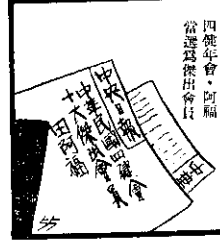 四健年會·阿福
當選爲傑出會員
中央日報
中華民國四健會
十大傑出會員
田阿福